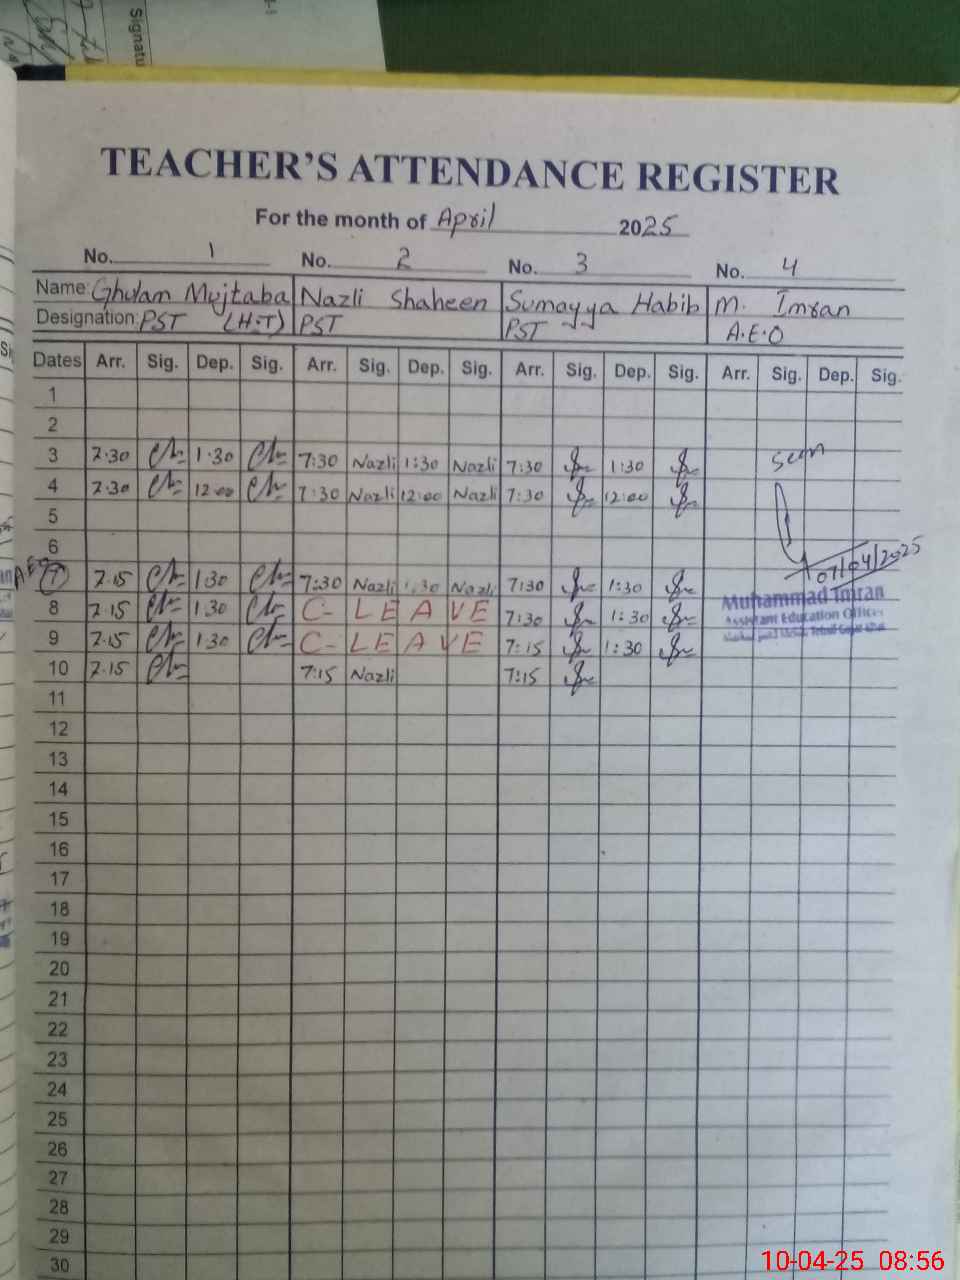 Signatu
TEACHER'S ATTENDANCE REGISTER
For the month of April 2025
No. 1 No. 2 No. 3 No. 4
Name: Ghulam Mujtaba Nazli Shaheen Sumayya Habib M. Imran
Designation: PST (H.T) PST PST A.E.O
Dates Arr. Sig. Dep. Sig. Arr. Sig. Dep. Sig. Arr. Sig. Dep. Sig. Arr. Sig. Dep. Sig.
1
2
3 7.30 1.30 7:30 Nazli 1:30 Nazli 7:30 1:30 seen
4 7.30 12.00 7:30 Nazli 12:00 Nazli 7:30 12:00
5
6
07/04/2025
AEO 7 7.15 1.30 7:30 Nazli 1:30 Nazli 7:30 1:30
Muhammad Imran
8 7.15 1.30 C- LEAVE 7:30 1:30
Assistant Education Officer
9 7.15 1.30 C- LEAVE 7:15 1:30
10 7.15 7:15 Nazli 7:15
11
12
13
14
15
16
17
18
19
20
21
22
23
24
25
26
27
28
29
30
10-04-25 08:56